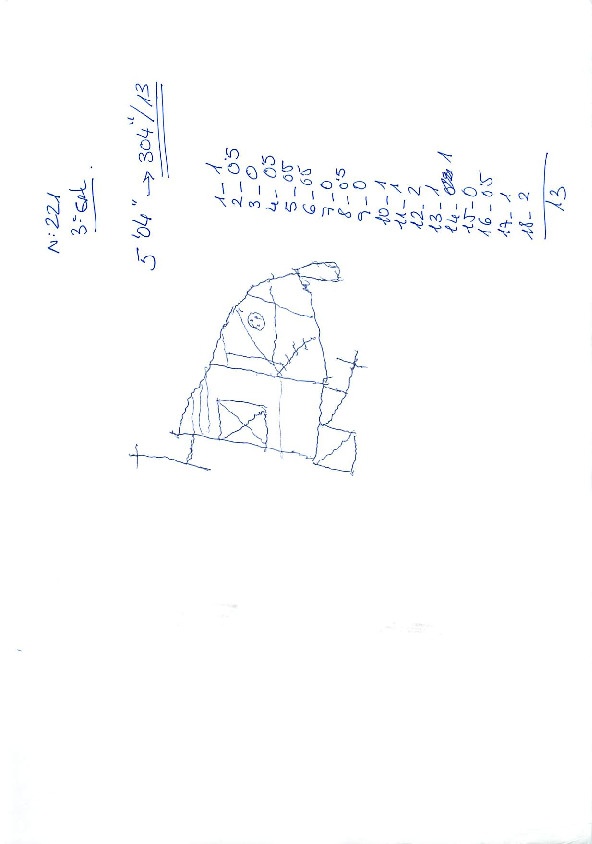 N: 221
3: Gel.
5'04" → 304"/13
1- 1
2- 0'5
3- 0
4- 0'5
5- 0'5
6- 0'5
7- 0
8- 0'5
9- 0
10- 1
11- 1
12- 2
13- 1
14- 1
15- 0
16- 0'5
17- 1
18- 2
13